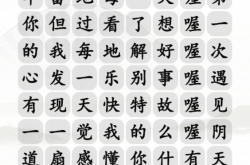 你但过看了想喔一
的我每地解好喔次
心发一乐别事喔遇
有现天快特故喔见
一一觉我的么喔阴
道扇感懂你什有天